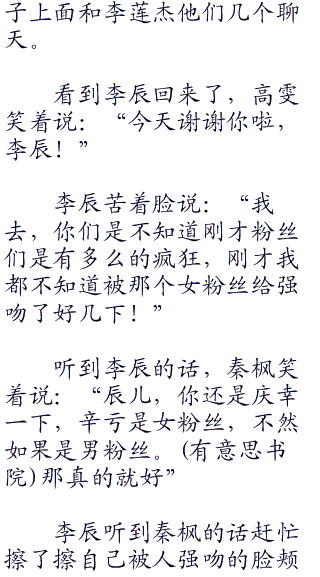 子上面和李莲杰他们几个聊
天。
看到李辰回来了，高雯
笑着说：“今天谢谢你啦，
李辰！”
李辰苦着脸说：“我
去，你们是不知道刚才粉丝
们是有多么的疯狂，刚才我
都不知道被那个女粉丝给强
吻了好几下！”
听到李辰的话，秦枫笑
着说：“辰儿，你还是庆幸
一下，辛亏是女粉丝，不然
如果是男粉丝。(有意思书
院)那真的就好”
李辰听到秦枫的话赶忙
擦了擦自己被人强吻的脸颊